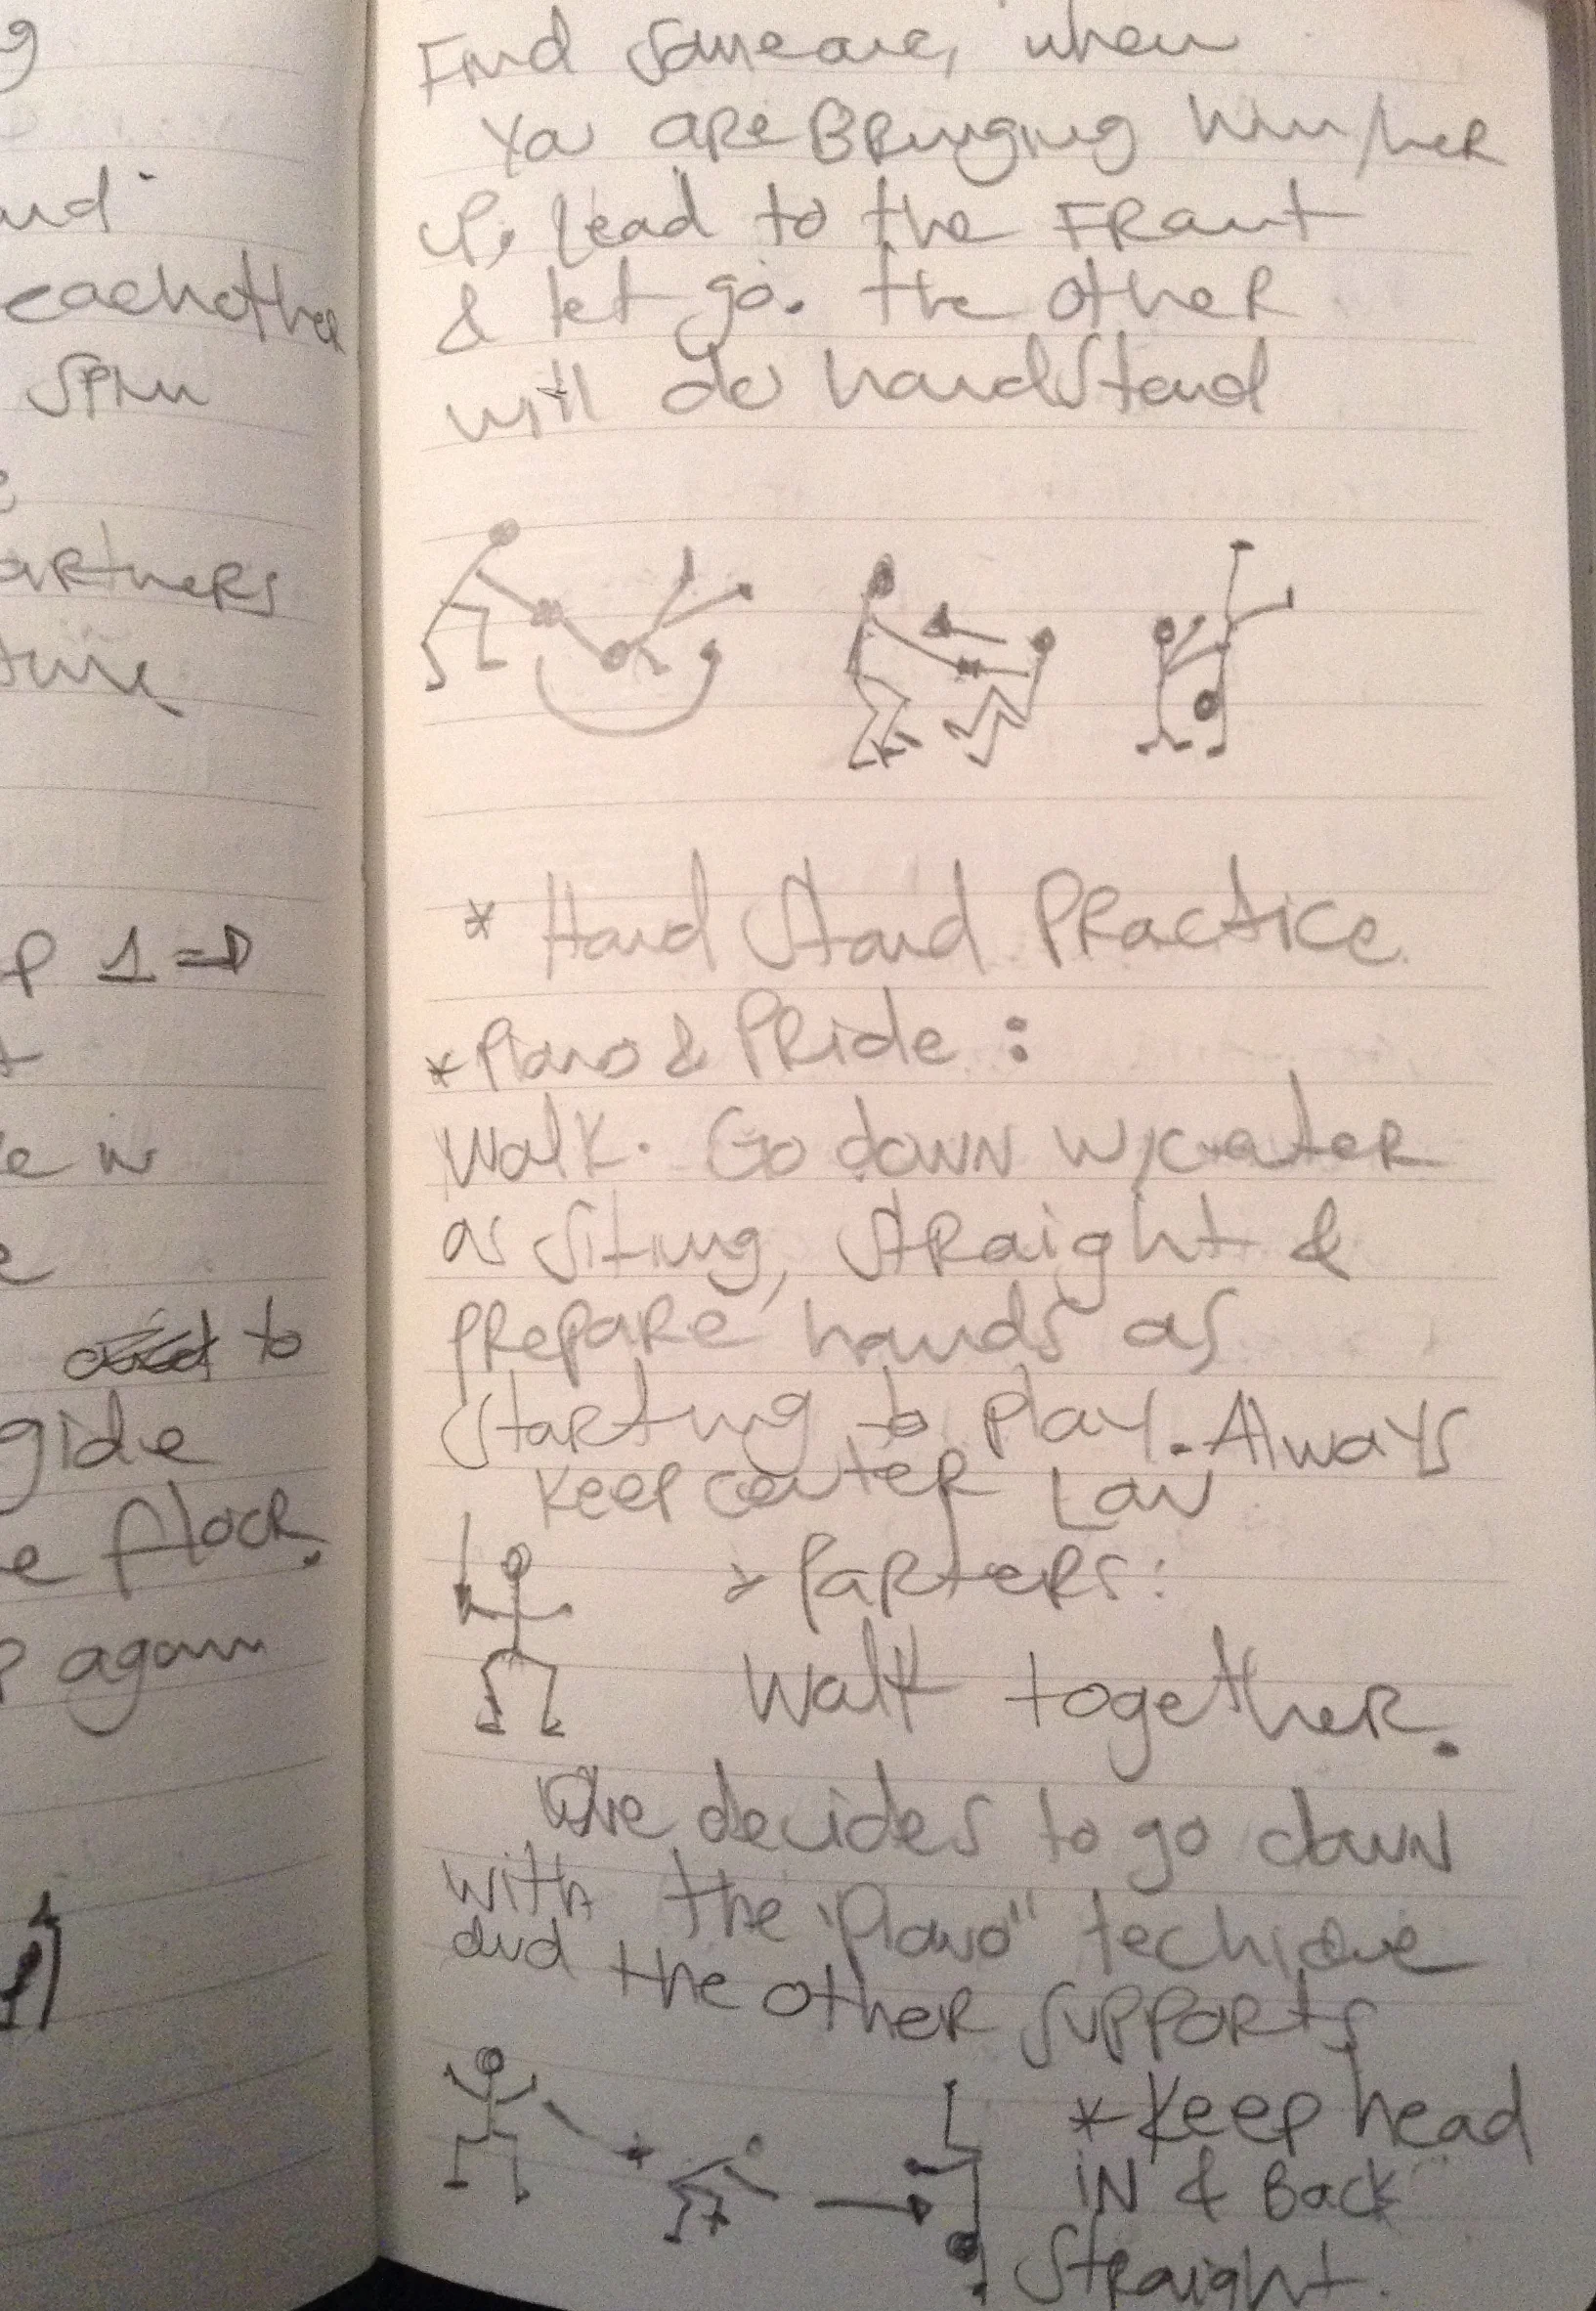 g
and
eachother
spin
artners
ture
p 1 ⇒
e in
e
to
gide
e floor.
again
Find someone, when
Yo are Bringing him/her
up, lead to the Front
& let go. the other
will do handstand
* Hand Stand Practice
* Piano & Pride :
Walk. Go down w/center
as siting, straight &
prepare hands as
starting to play. Always
keep center Low
* Parters:
Walk together.
One decides to go down
with the "Piano" techique
and the other supports
* Keep head
in & Back
straight.